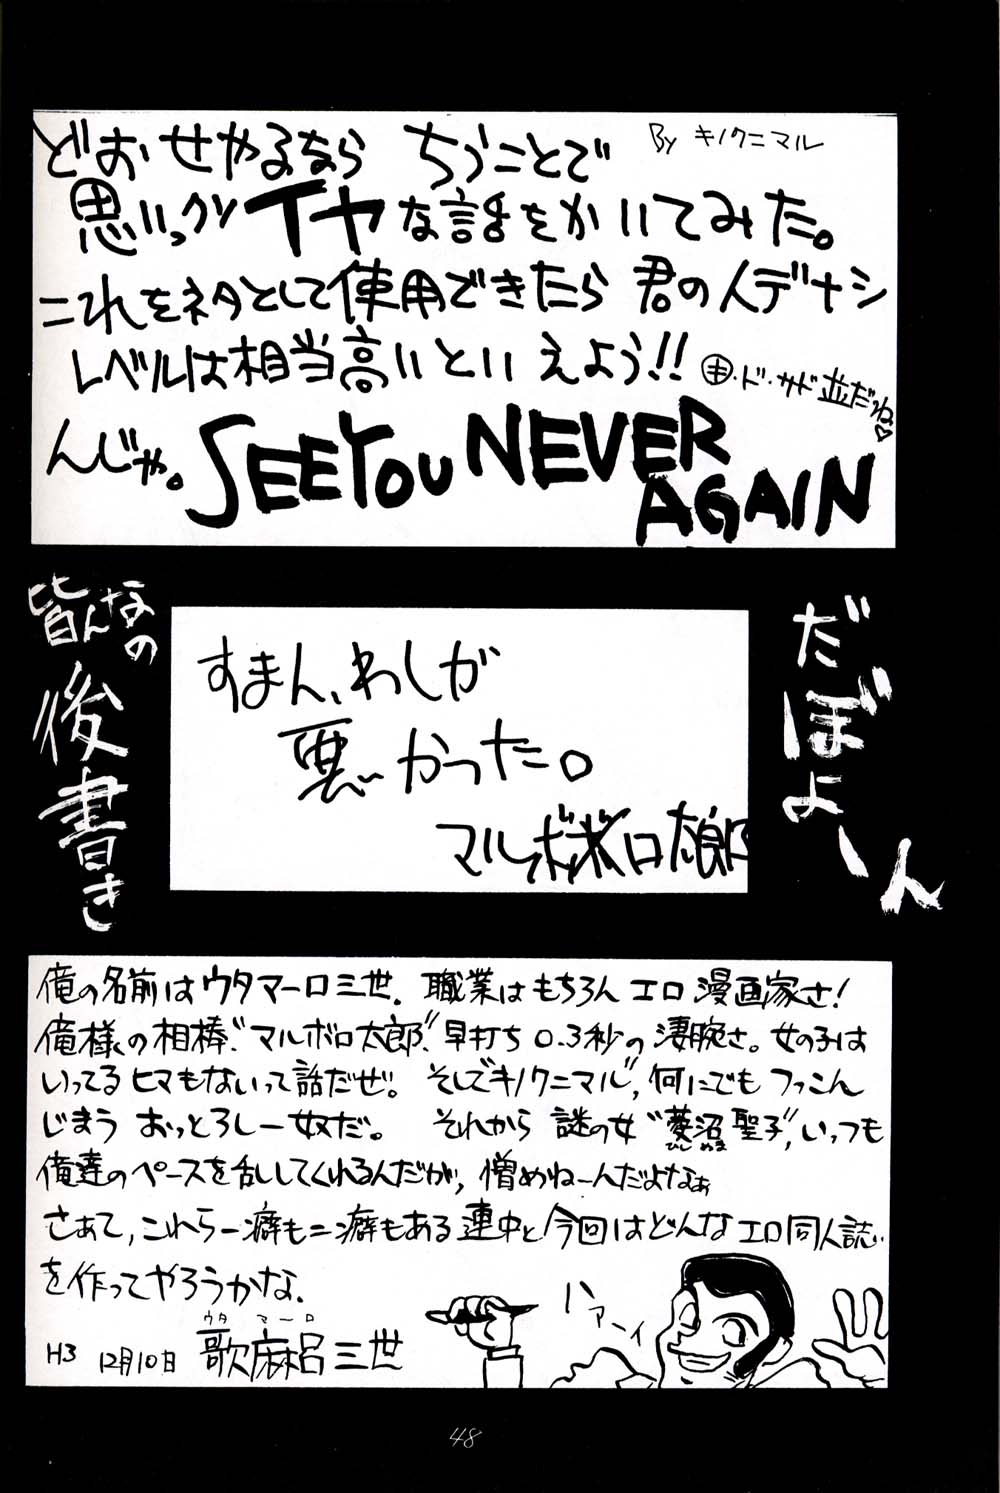 どおせやるなら ちうことで
By キノクニマル
思いっクソ イヤな話をかいてみた。
これをネタとして使用できたら 君の人デナシ
レベルは相当高いといえよう!!
・ド・サド並だね♡
んじゃ。SEE YOU NEVER
AGAIN
皆んなの
後書き
だぼよーん
すまん、わしが
悪かった。
マルボロ太郎
俺の名前はウタマーロ三世. 職業はもちろん エロ漫画家さ!
俺様の相棒“マルボロ太郎”、早打ち0.3秒の凄腕さ。女の子は
いってるヒマもないって話だぜ。 そして“キノクニマル”, 何にでもフっこん
じまう おっとろしー奴だ。 それから 謎の女“菱沼聖子”, いっつも
ひし ぬま
俺達のペースを乱してくれるんだが, 憎めねーんだよなぁ
さあて, これら一癖も二癖もある連中と 今回はどんなエロ同人誌
を作ってやろうかな.
ハァーイ
ウタ マーロ
H3 12月10日 歌麻呂三世
48